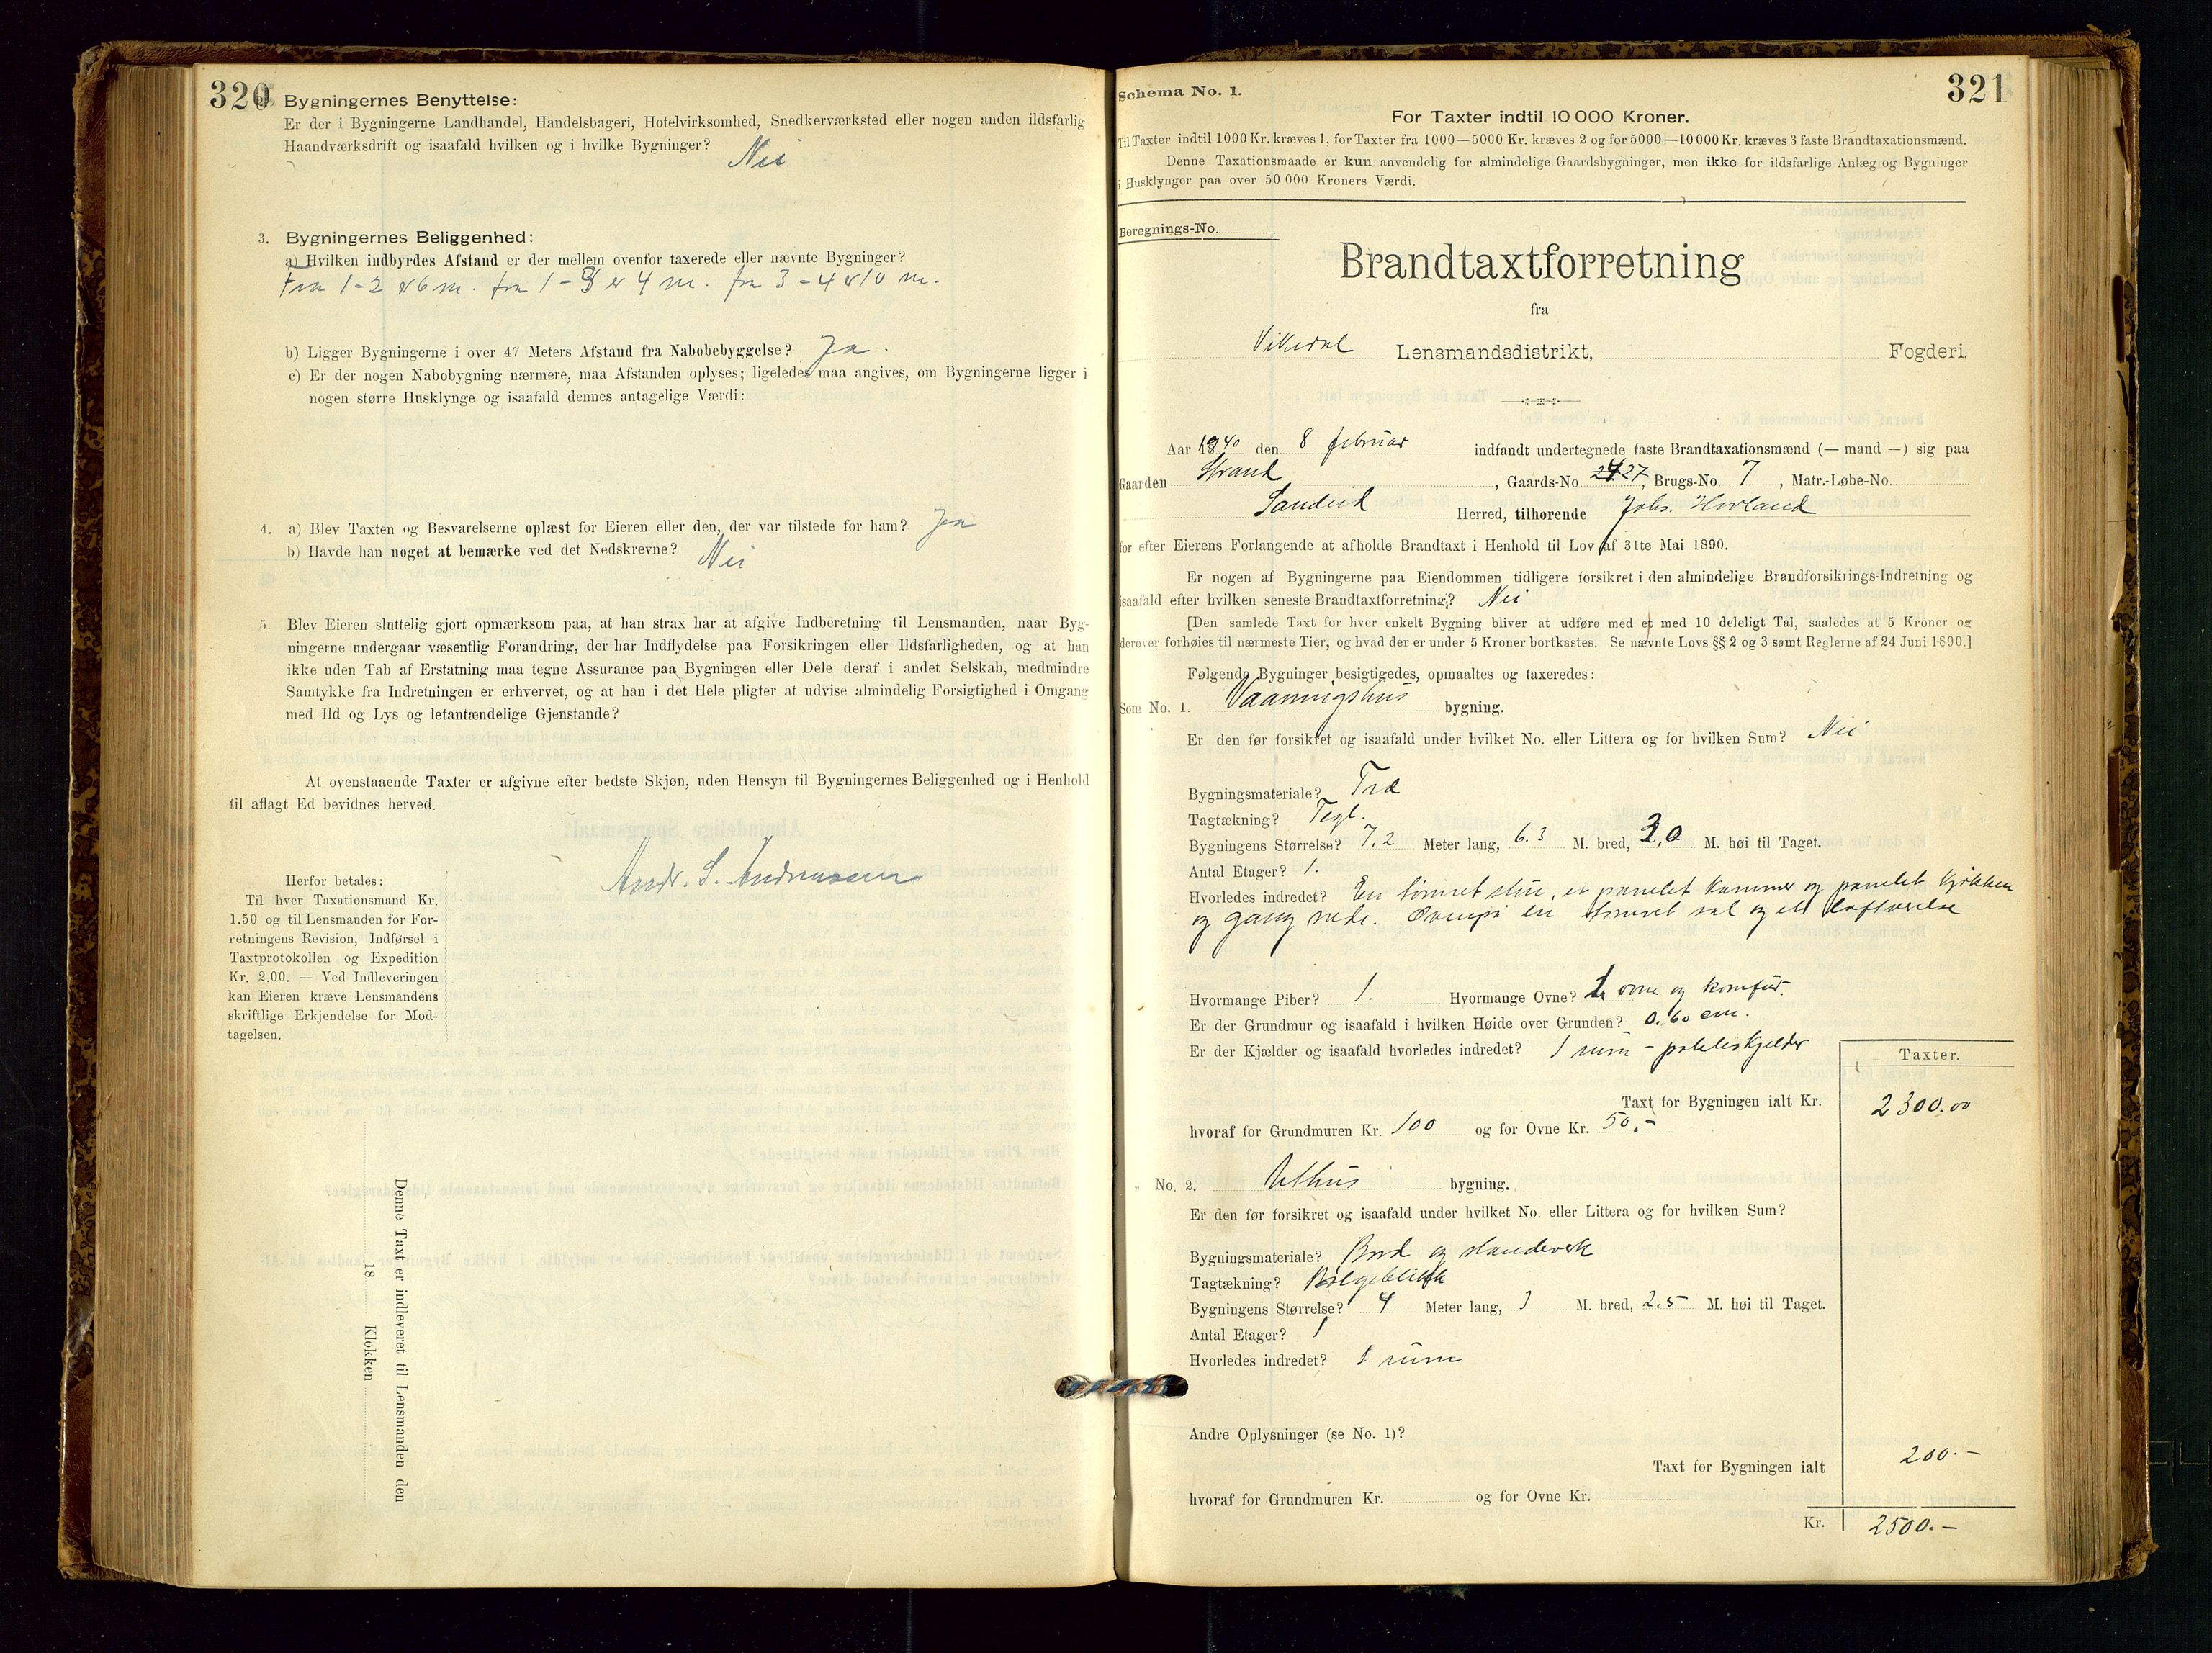 320
Bygningernes Benyttelse:
Er der i Bygningerne Landhandel, Handelsbageri, Hotelvirksomhed, Snedkerværksted eller nogen anden ildsfarlig
Haandværksdrift og isaafald hvilken og i hvilke Bygninger? Nei
3. Bygningernes Beliggenhed:
a) Hvilken indbyrdes Afstand er der mellem ovenfor taxerede eller nævnte Bygninger?
Fra 1-2 er 6 m. fra 1-3 er 4 m. fra 3-4 er 10 m.
b) Ligger Bygningerne i over 47 Meters Afstand fra Nabobebyggelse? Ja.
c) Er der nogen Nabobygning nærmere, maa Afstanden oplyses; ligeledes maa angives, om Bygningerne ligger i
nogen større Husklynge og isaafald dennes antagelige Værdi:
4. a) Blev Taxten og Besvarelserne oplæst for Eieren eller den, der var tilstede for ham? Ja
b) Havde han noget at bemærke ved det Nedskrevne? Nei
5. Blev Eieren sluttelig gjort opmærksom paa, at han strax har at afgive Indberetning til Lensmanden, naar Byg-
ningerne undergaar væsentlig Forandring, der har Indflydelse paa Forsikringen eller Ildsfarligheden, og at han
ikke uden Tab af Erstatning maa tegne Assurance paa Bygningen eller Dele deraf i andet Selskab, medmindre
Samtykke fra Indretningen er erhvervet, og at han i det Hele pligter at udvise almindelig Forsigtighed i Omgang
med Ild og Lys og letantændelige Gjenstande?
At ovenstaaende Taxter er afgivne efter bedste Skjøn, uden Hensyn til Bygningernes Beliggenhed og i Henhold
til aflagt Ed bevidnes herved.
Andr. S. Andreassen
Herfor betales:
Til hver Taxationsmand Kr.
1.50 og til Lensmanden for For-
retningens Revision, Indførsel i
Taxtprotokollen og Expedition
Kr. 2.00. — Ved Indleveringen
kan Eieren kræve Lensmandens
skriftlige Erkjendelse for Mod-
tagelsen.
Denne Taxt er indleveret til Lensmanden den
18 Klokken
321
Schema No. 1.
For Taxter indtil 10 000 Kroner.
Til Taxter indtil 1000 Kr. kræves 1, for Taxter fra 1000—5000 Kr. kræves 2 og for 5000—10 000 Kr. kræves 3 faste Brandtaxationsmænd.
Denne Taxationsmaade er kun anvendelig for almindelige Gaardsbygninger, men ikke for ildsfarlige Anlæg og Bygninger
i Husklynger paa over 50 000 Kroners Værdi.
Beregnings-No.
Brandtaxtforretning
fra
Vikedal Lensmandsdistrikt, Fogderi.
Aar 1940 den 8 februar indfandt undertegnede faste Brandtaxationsmænd (— mand —) sig paa
Gaarden Strand, Gaards-No. 27, Brugs-No. 7, Matr.-Løbe-No.
Sandeid Herred, tilhørende Johs. Hovland
for efter Eierens Forlangende at afholde Brandtaxt i Henhold til Lov af 31te Mai 1890.
Er nogen af Bygningerne paa Eiendommen tidligere forsikret i den almindelige Brandforsikrings-Indretning og
isaafald efter hvilken seneste Brandtaxtforretning? Nei
[Den samlede Taxt for hver enkelt Bygning bliver at udføre med et med 10 deleligt Tal, saaledes at 5 Kroner og
derover forhøies til nærmeste Tier, og hvad der er under 5 Kroner bortkastes. Se nævnte Lovs §§ 2 og 3 samt Reglerne af 24 Juni 1890.]
Følgende Bygninger besigtigedes, opmaaltes og taxeredes:
Som No. 1. Vaaningshus bygning.
Er den før forsikret og isaafald under hvilket No. eller Littera og for hvilken Sum? Nei
Bygningsmateriale? Træ
Tagtækning? Tegl.
Bygningens Størrelse? 7,2 Meter lang, 6.3 M. bred, 3,0 M. høi til Taget.
Antal Etager? 1.
Hvorledes indredet? En tømret stue, et panelet kammer og panelet kjøkken
og gang nede. Ovenpå en tømret sal og et loftværelse
Hvormange Piber? 1. Hvormange Ovne? 1 ovne og komfur.
Er der Grundmur og isaafald i hvilken Høide over Grunden? 0.60 cm.
Er der Kjælder og isaafald hvorledes indredet? 1 rum - poteteskjelder
Taxter.
Taxt for Bygningen ialt Kr. 2300.00
hvoraf for Grundmuren Kr. 100 og for Ovne Kr. 50.-
" No. 2. Uthus bygning.
Er den før forsikret og isaafald under hvilket No. eller Littera og for hvilken Sum?
Bygningsmateriale? Bord og standverk
Tagtækning? Bølgeblikk
Bygningens Størrelse? 4 Meter lang, 3 M. bred, 2.5 M. høi til Taget.
Antal Etager? 1
Hvorledes indredet? 1 rum
Andre Oplysninger (se No. 1)?
Taxt for Bygningen ialt 200.-
hvoraf for Grundmuren Kr. og for Ovne Kr.
Kr. 2500.-